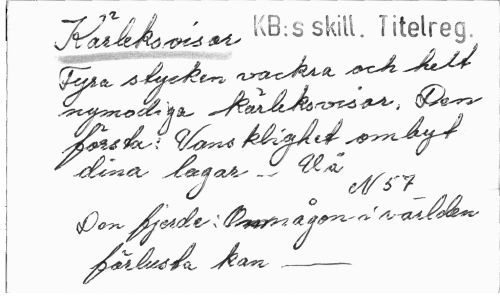 Kärleksvisor KB:s skill. Titelreg.
Fyra stycken vackra och helt
nymodiga kärleksvisor. Den
första: Vansklighet ombyt
dina lagar — Vä
N 57
Den fjerde: Om någon i världen
förlusta kan —